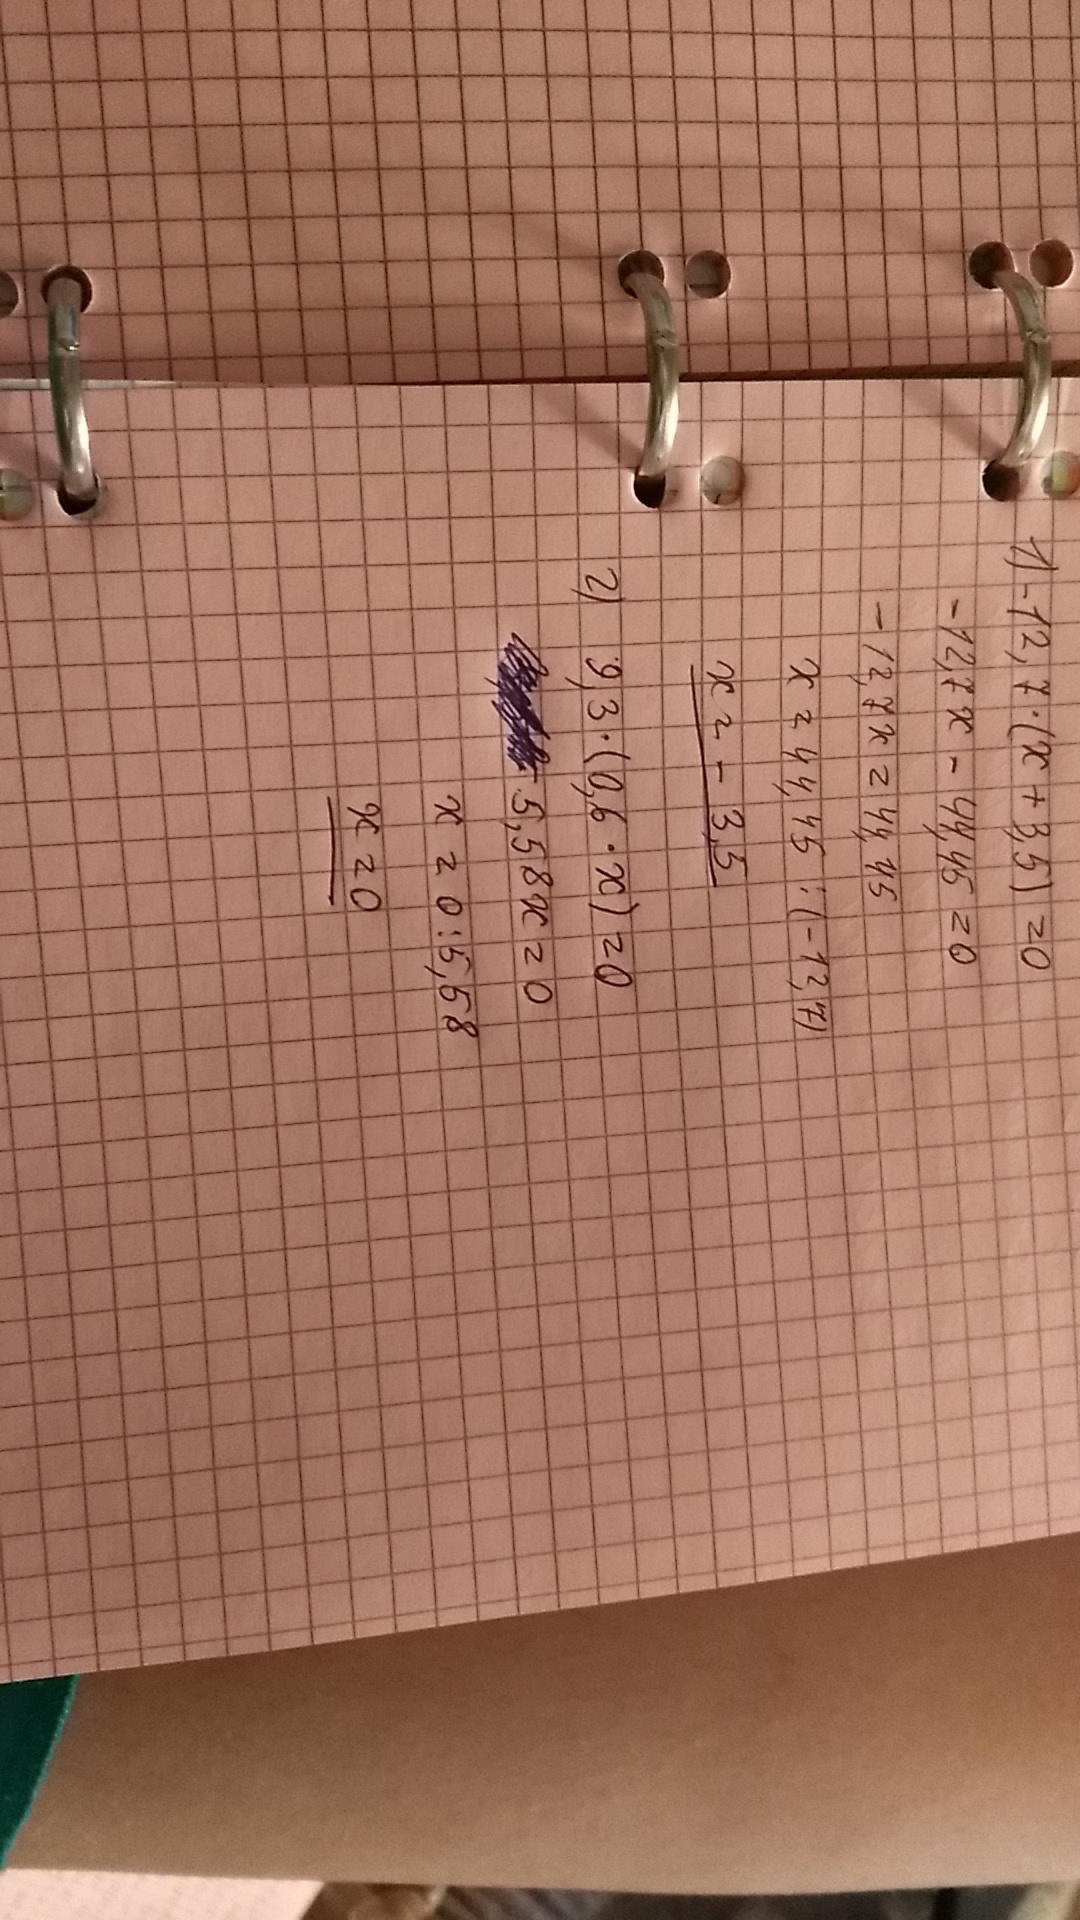 1) -12,7·(x+3,5)=0
-12,7x-44,45=0
-12,7x=44,45
x=44,45:(-12,7)
x=-3,5
2) 9,3·(0,6·x)=0
5,58x=0
x=0:5,58
x=0